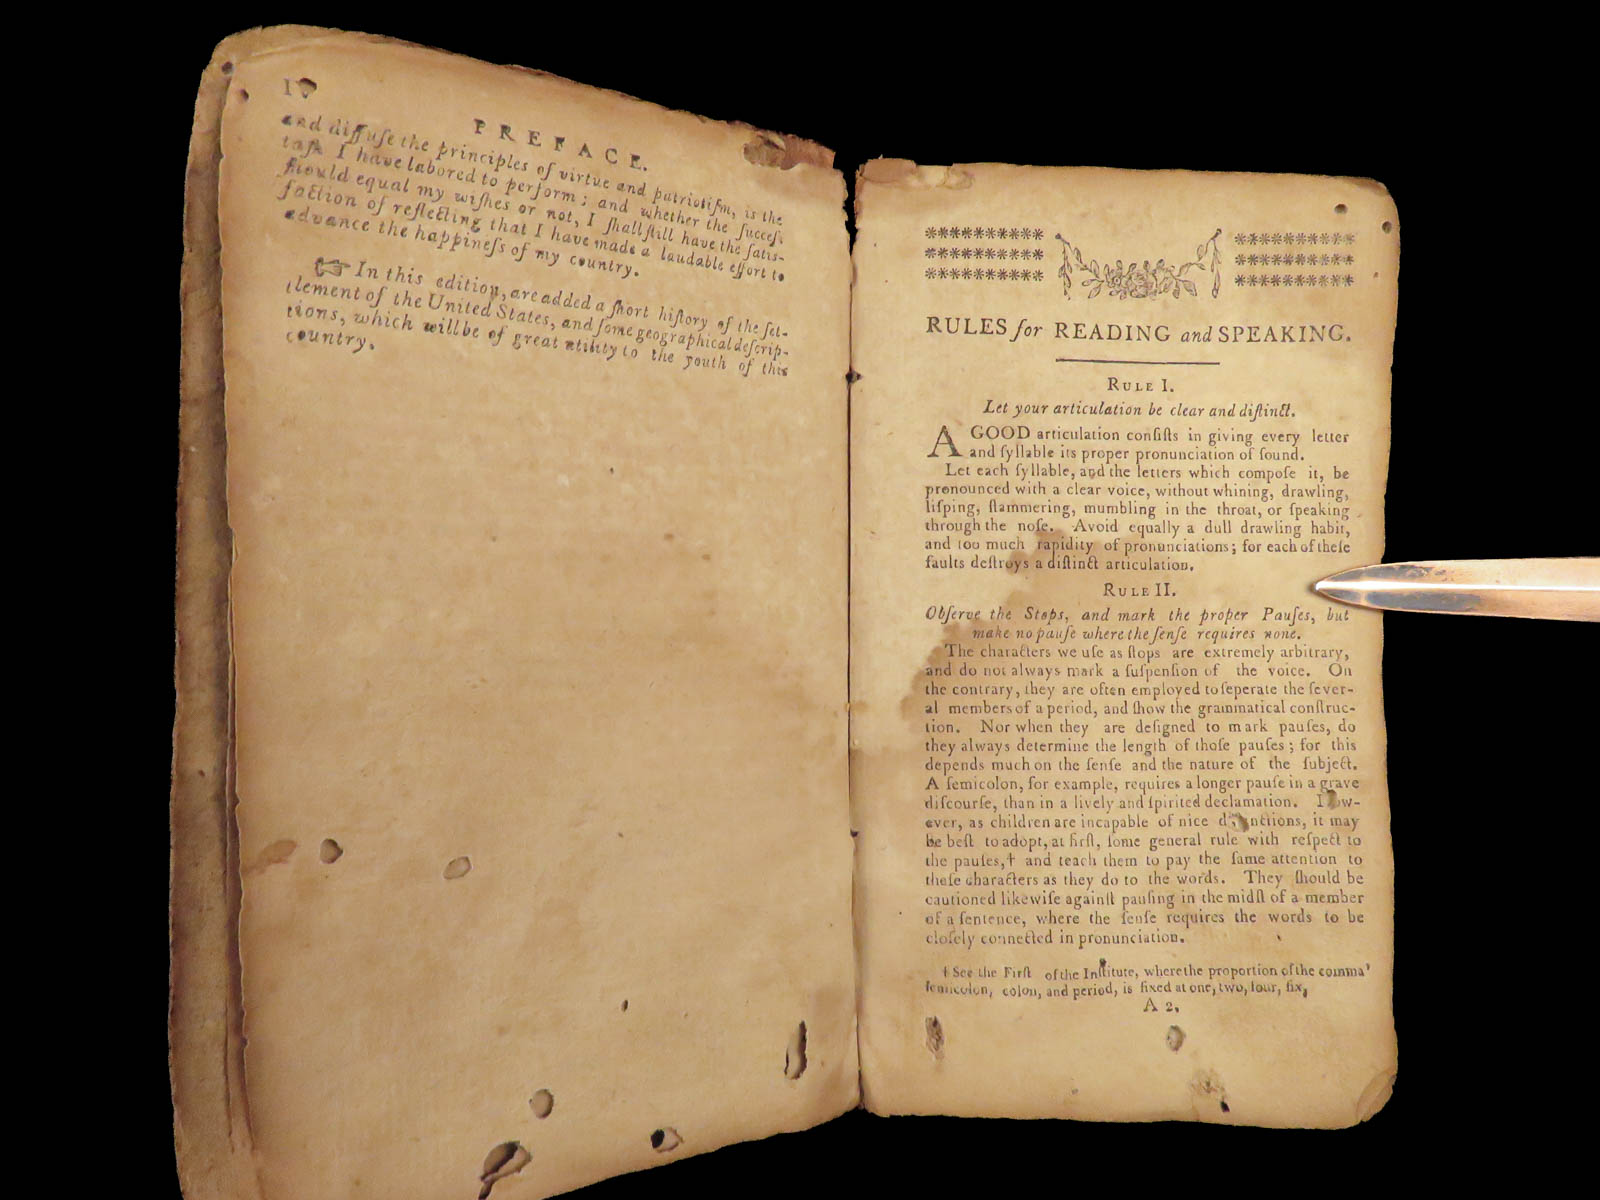 PREFACE.
and diffuſe the principles of virtue and patriotiſm, is the
taſk I have labored to perform; and whether the ſucceſs
ſhould equal my wiſhes or not, I ſhall ſtill have the ſatis-
faction of reflecting that I have made a laudable effort to
advance the happineſs of my country.
☞ In this edition, are added a ſhort hiſtory of the ſet-
tlement of the United States, and ſome geographical deſcrip-
tions, which will be of great utility to the youth of this
country.
RULES for READING and SPEAKING.
RULE I.
Let your articulation be clear and diſtinct.
A GOOD articulation conſiſts in giving every letter
and ſyllable its proper pronunciation of ſound.
Let each ſyllable, and the letters which compoſe it, be
pronounced with a clear voice, without whining, drawling,
liſping, ſtammering, mumbling in the throat, or ſpeaking
through the noſe. Avoid equally a dull drawling habit,
and too much rapidity of pronunciations; for each of theſe
faults deſtroys a diſtinct articulation.
RULE II.
Obſerve the Stops, and mark the proper Pauſes, but
make no pauſe where the ſenſe requires none.
The characters we uſe as ſtops are extremely arbitrary,
and do not always mark a ſuſpenſion of the voice. On
the contrary, they are often employed to ſeperate the ſever-
al members of a period, and ſhow the grammatical conſtruc-
tion. Nor when they are deſigned to mark pauſes, do
they always determine the length of thoſe pauſes; for this
depends much on the ſenſe and the nature of the ſubject.
A ſemicolon, for example, requires a longer pauſe in a grave
diſcourſe, than in a lively and ſpirited declamation. How-
ever, as children are incapable of nice it may
be beſt to adopt, at firſt, ſome general rule with reſpect to
the pauſes,† and teach them to pay the ſame attention to
theſe characters as they do to the words. They ſhould be
cautioned likewiſe againſt pauſing in the midſt of a member
of a ſentence, where the ſenſe requires the words to be
cloſely connected in pronunciation.
† See the Firſt of the Inſtitute, where the proportion of the comma
ſemicolon, colon, and period, is fixed at one, two, four, ſix,
A 2.